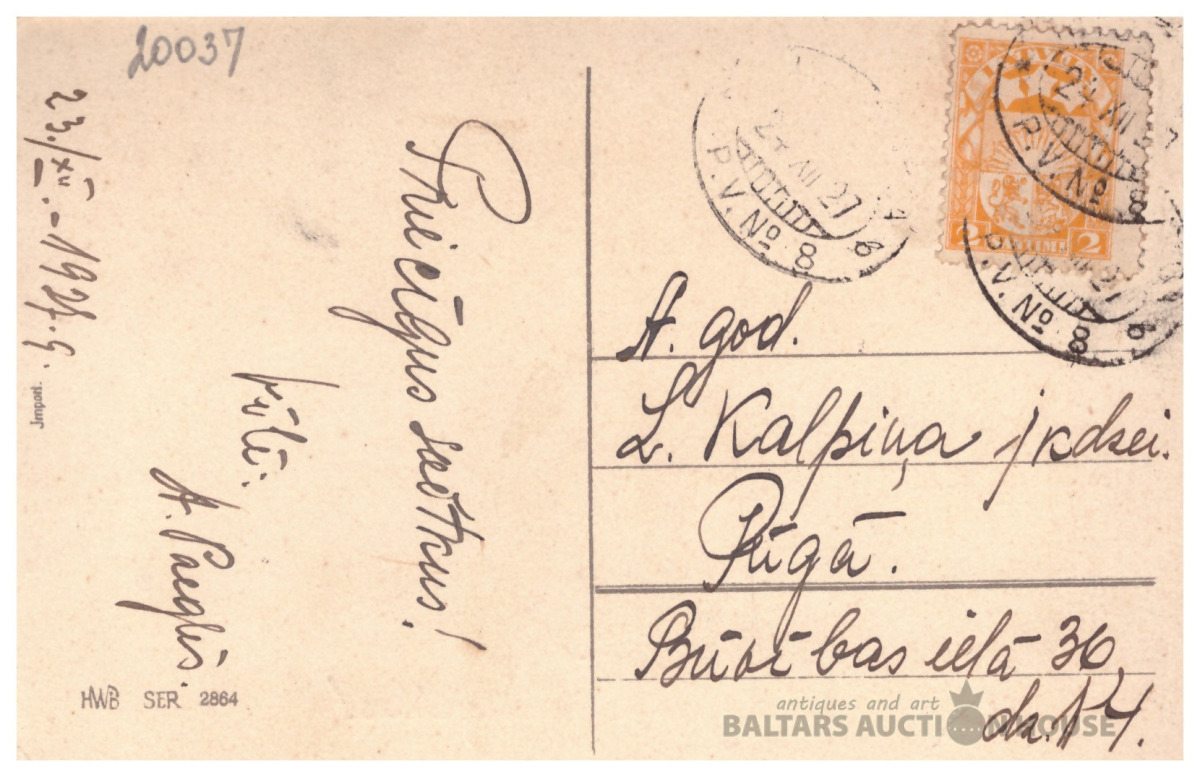 20037
23./XII.-1927.g.
Priecīgus svētkus!
vēlē.
A. Paeglis.
Import.
HWB SER. 2864
LATVIJA
2 2
24 XII 27
P.V.No 8
24 XII 27
P.V.No 8 6
P.V.No 8 6
A. god.
L. Kalpiņa jkdzei.
Rīgā.
Brīvības ielā 36,
dz. 14.
antiques and art
BALTARS AUCTIONHOUSE